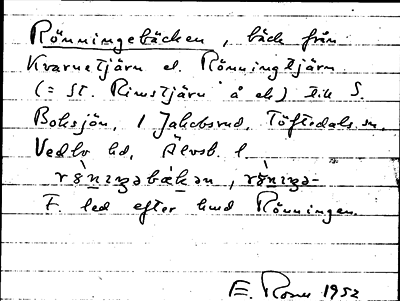 Rönningebäcken, bäck från
Kvarnetjärn el. Rönningtjärn
(= St. Rimstjärn å ek) till S.
Boksjön, i Jakobsrud, Töftedals sn,
Vedbo hd, Älvsb. l.
F. led efter hmd Rönningen.
E. 1952